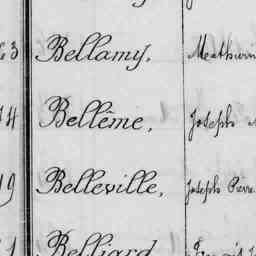 3 Bellamy, Mathurin
4 Bellême, Joseph
9 Belleville, Joseph Pierre
1 Belliard